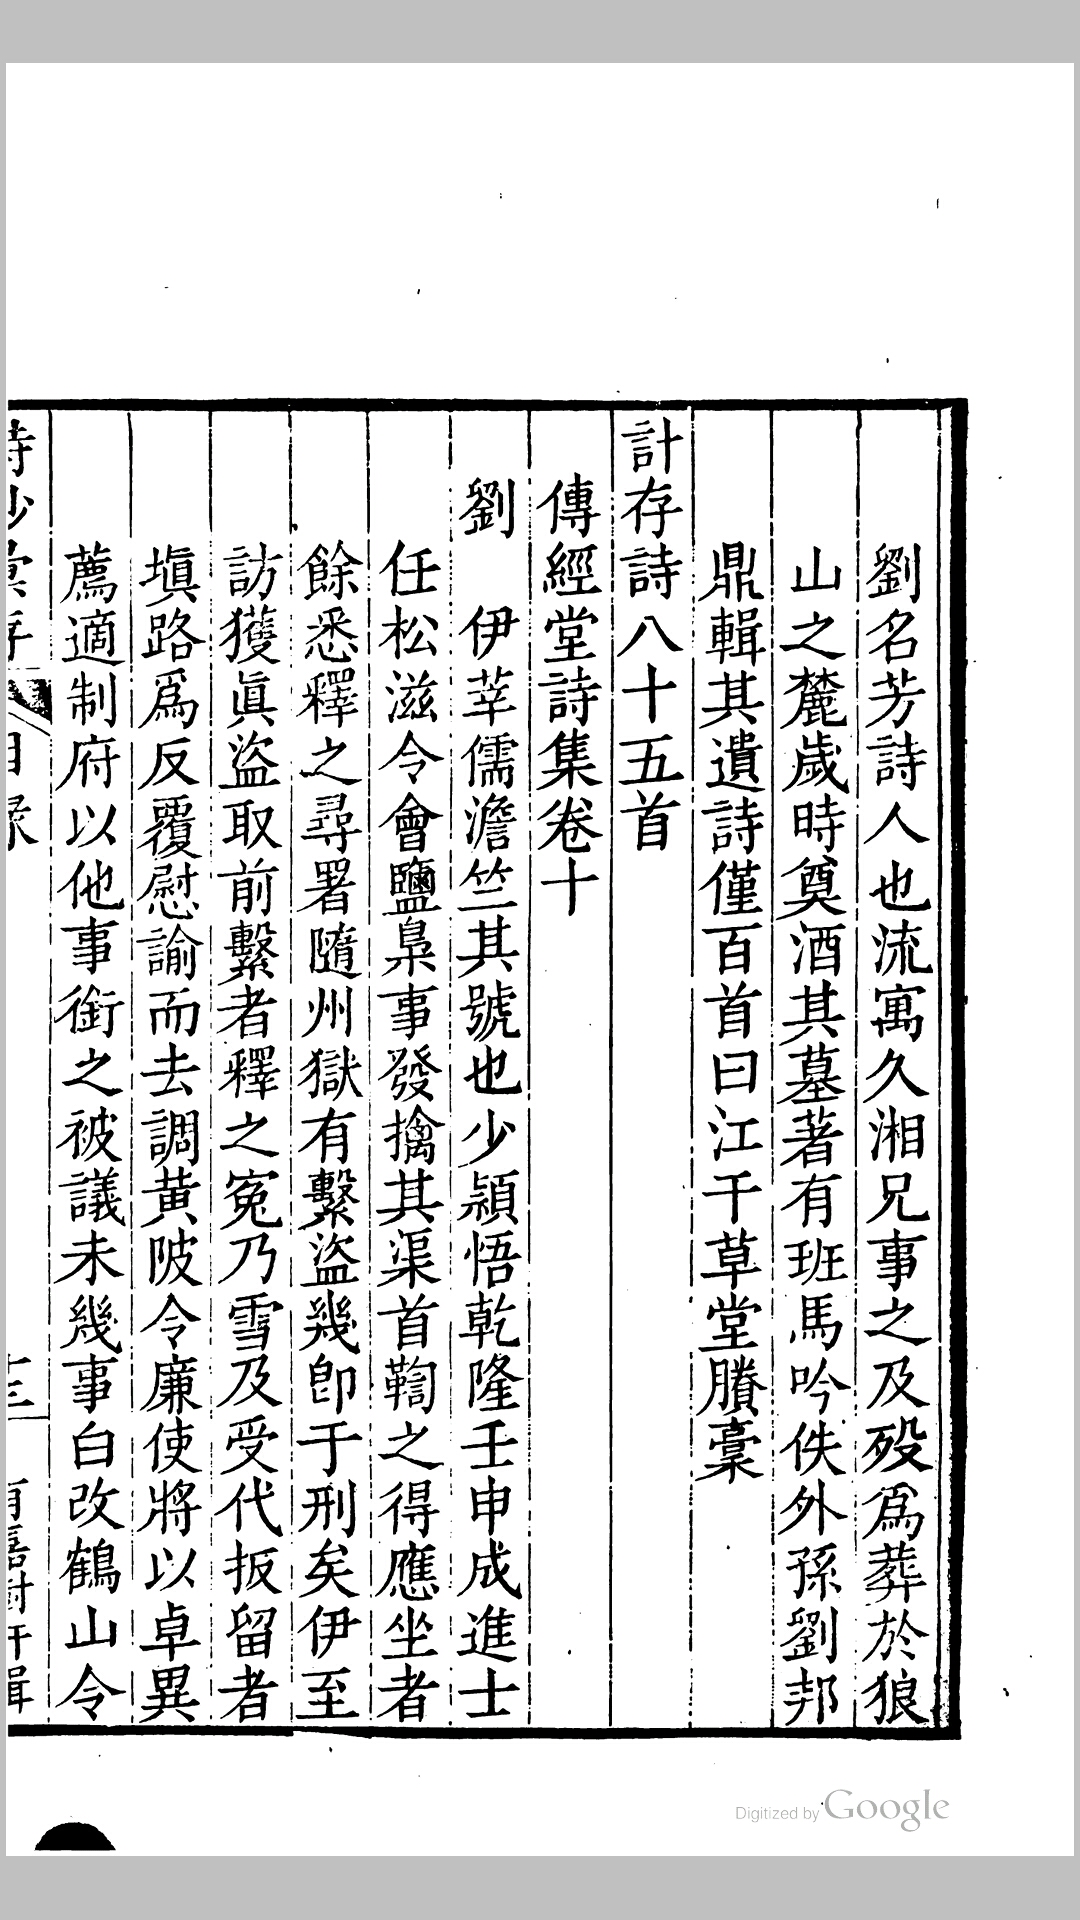 劉名芳詩人也流寓久湘兄事之及歿爲葬於狼
山之麓歲時奠酒其墓著有班馬吟佚外孫劉邦
鼎輯其遺詩僅百首曰江干草堂賸稾
計存詩八十五首
傳經堂詩集卷十
劉　伊莘儒澹竺其號也少穎悟乾隆壬申成進士
任松滋令會鹽梟事發擒其渠首鞫之得應坐者
餘悉釋之尋署隨州獄有繫盜幾卽于刑矣伊至
訪獲眞盜取前繫者釋之冤乃雪及受代扳留者
塡路爲反覆慰諭而去調黃陂令廉使將以卓異
薦適制府以他事銜之被議未幾事白改鶴山令
詩鈔彙存　目錄
Digitized by Google